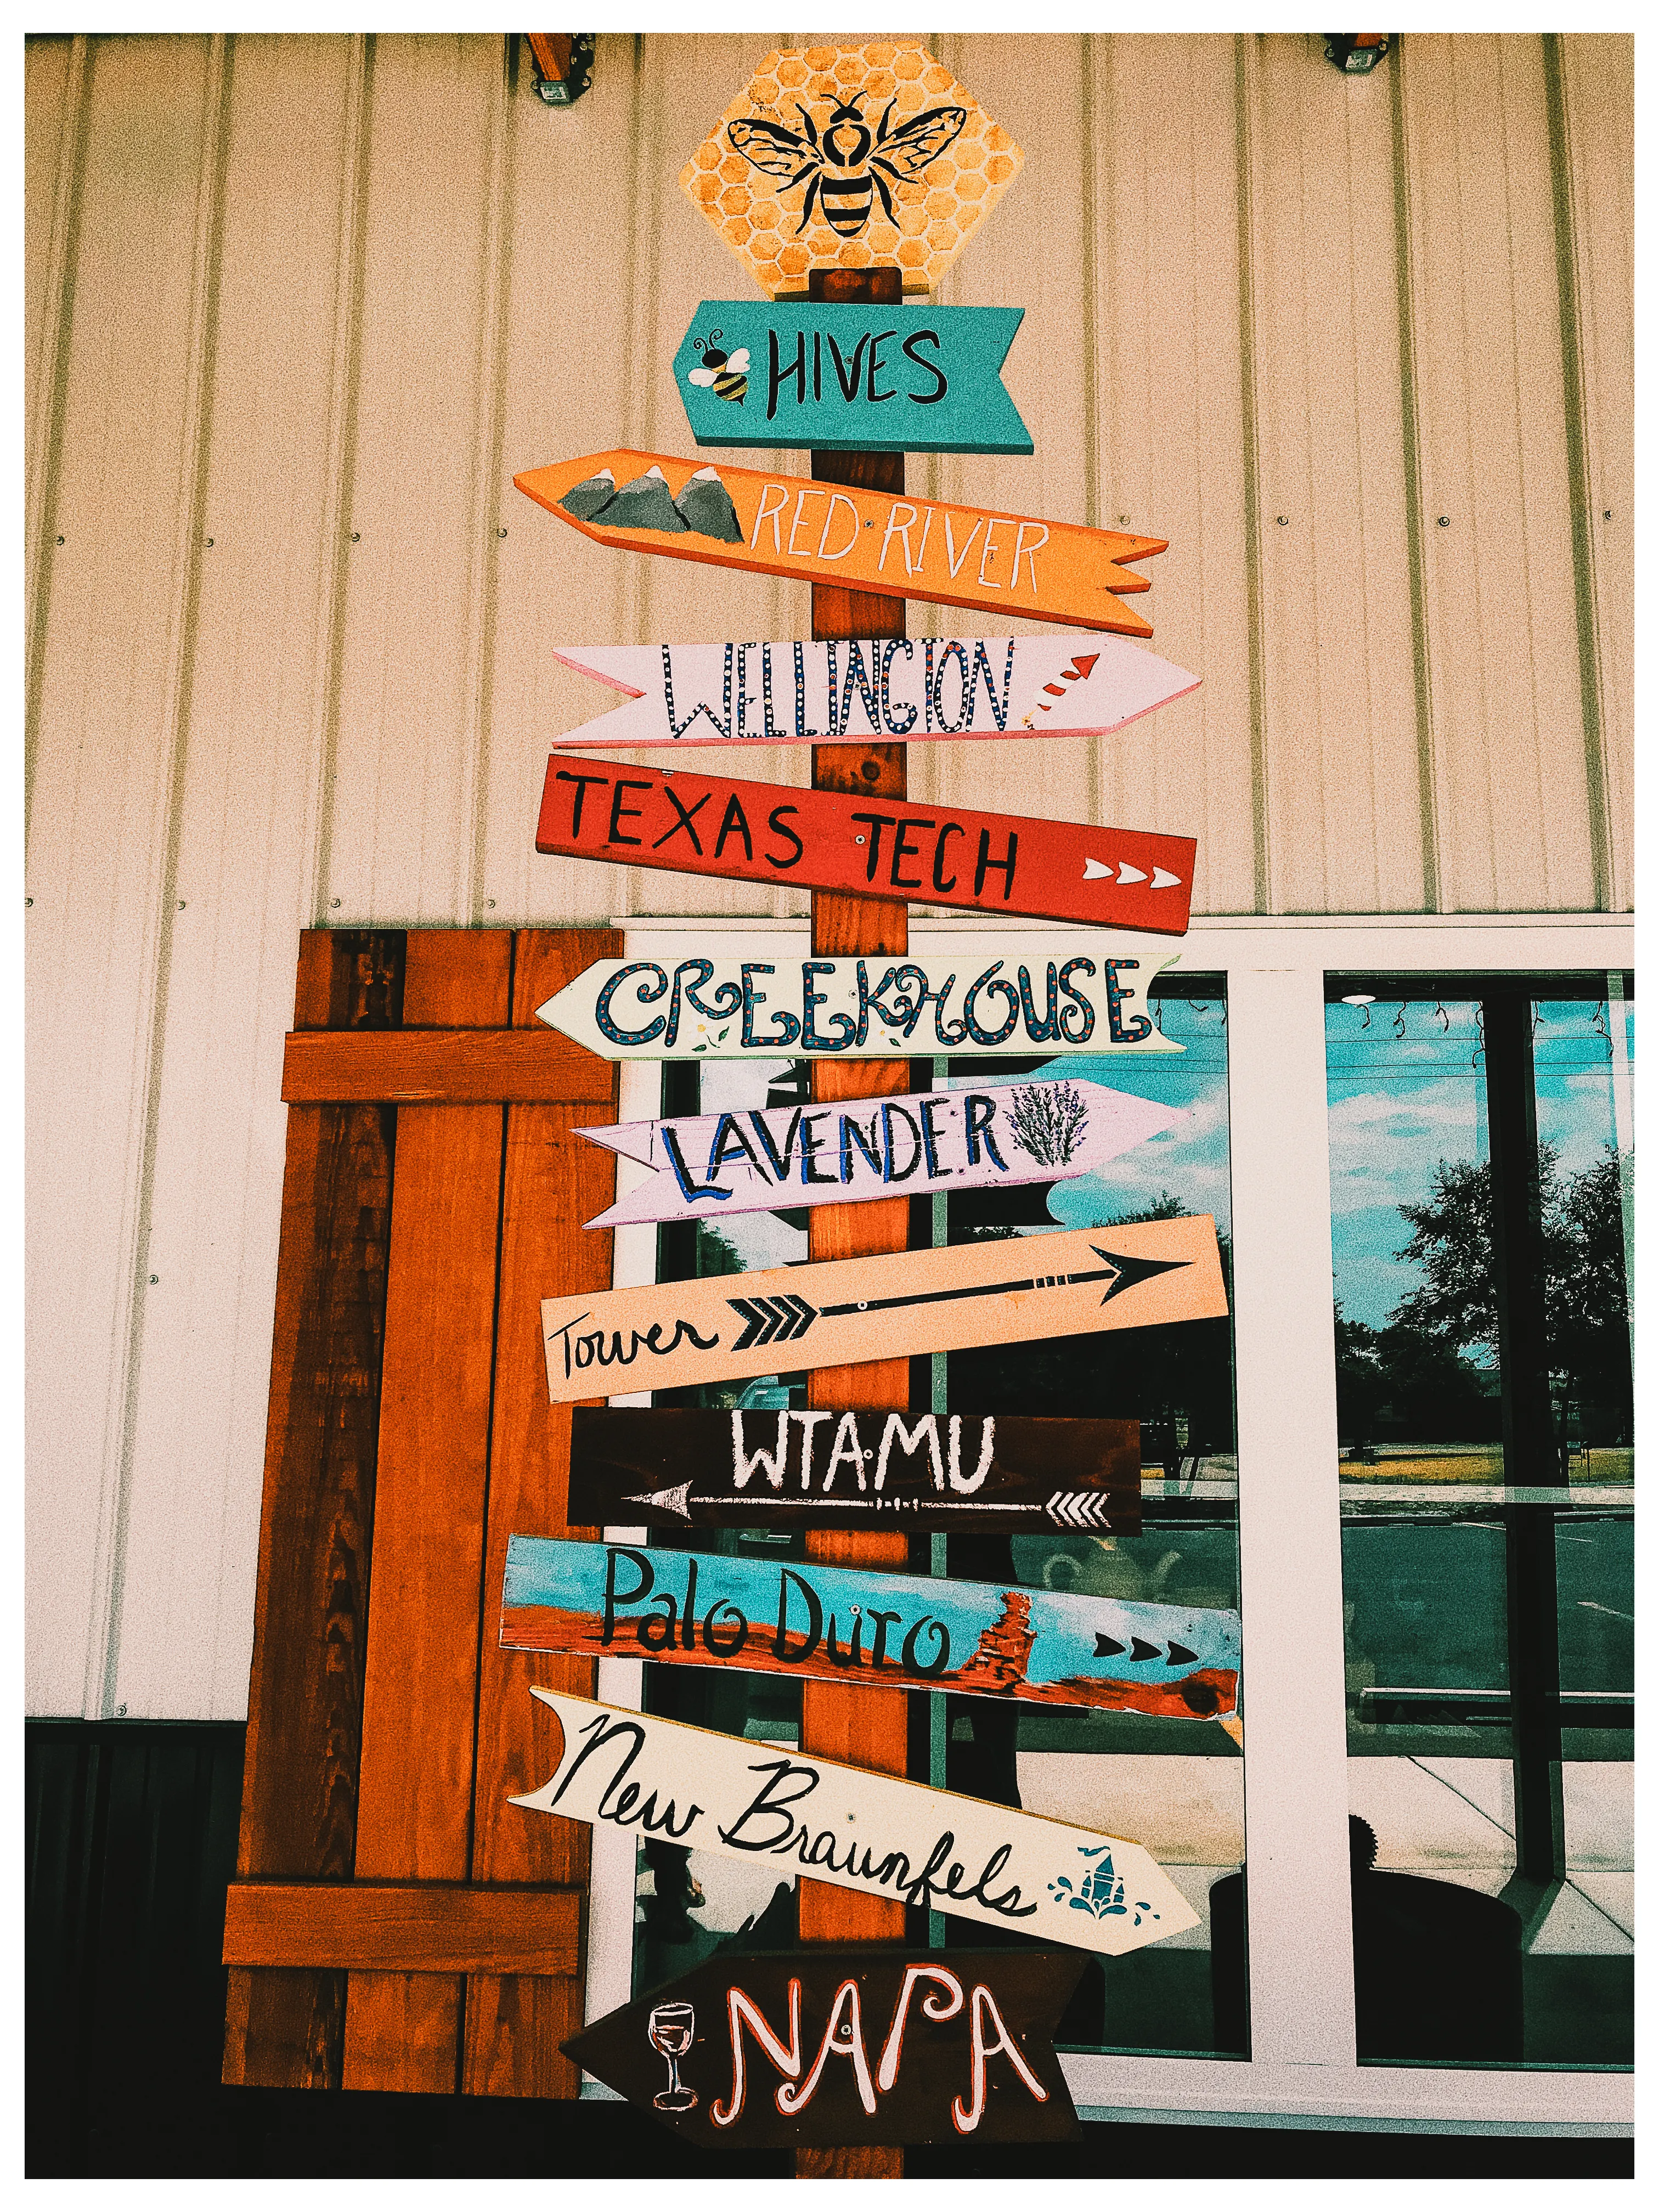 HIVES
RED RIVER
WELLINGTON
TEXAS TECH
CREEKHOUSE
LAVENDER
Tower
WTAMU
Palo Duro
New Braunfels
NAPA